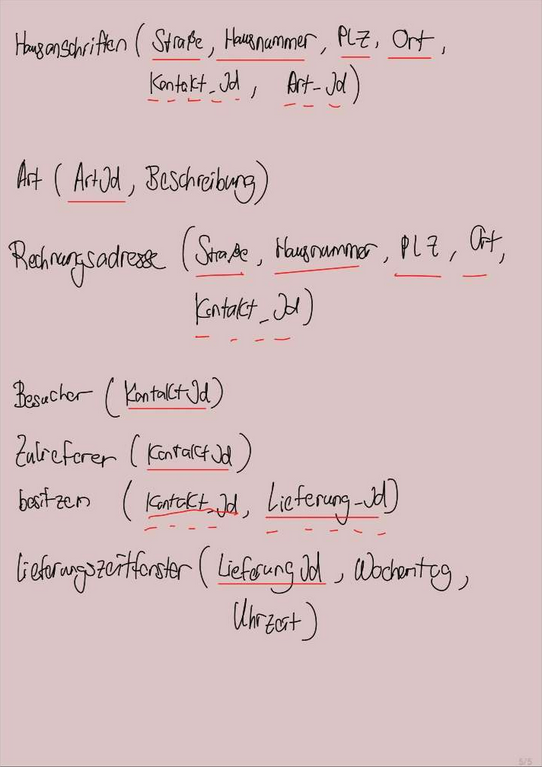 Hausanschriften ( Straße, Hausnummer, PLZ, Ort,
Kontakt_Id, Art_Id)
Art ( ArtId, Beschreibung)
Rechnungsadresse (Straße, Hausnummer, PLZ, Ort,
Kontakt_Id)
Besucher (KontaktId)
Zulieferer (KontaktId)
besitzen (Kontakt_Id, Lieferung_Id)
Lieferungszeitfenster (LieferungId, Wochentag,
Uhrzeit)
5/5